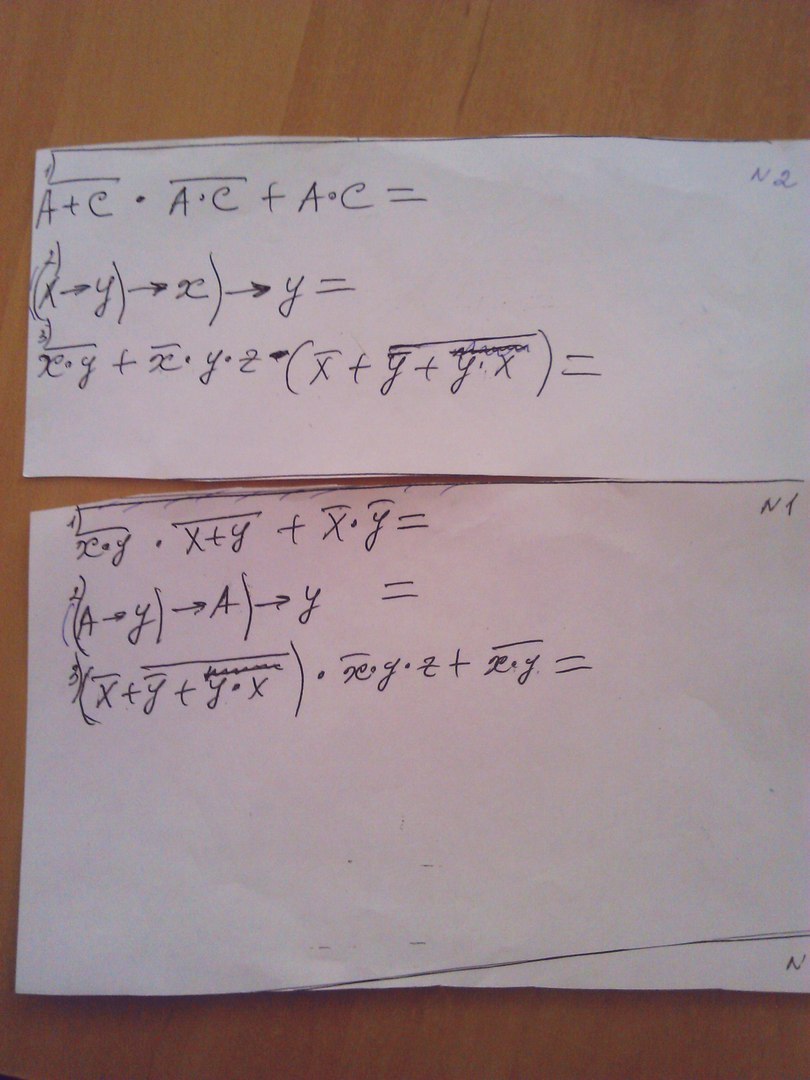 N2
1) A̅+̅C̅ · A̅·̅C̅ + A·C =
2) ((x→y)→x)→y =
3) x̅·̅y̅ + x̅·y·z·(x̅ + y̅̅ ̅+̅ ̅y̅·̅x̅) =
N1
1) x̅·̅y̅ · x̅+̅y̅ + x̅·y̅ =
2) ((A→y)→A)→y =
3) (x̅ + y̅̅ ̅+̅ ̅y̅·̅x̅) · x̅·y·z + x̅·̅y̅ =
N